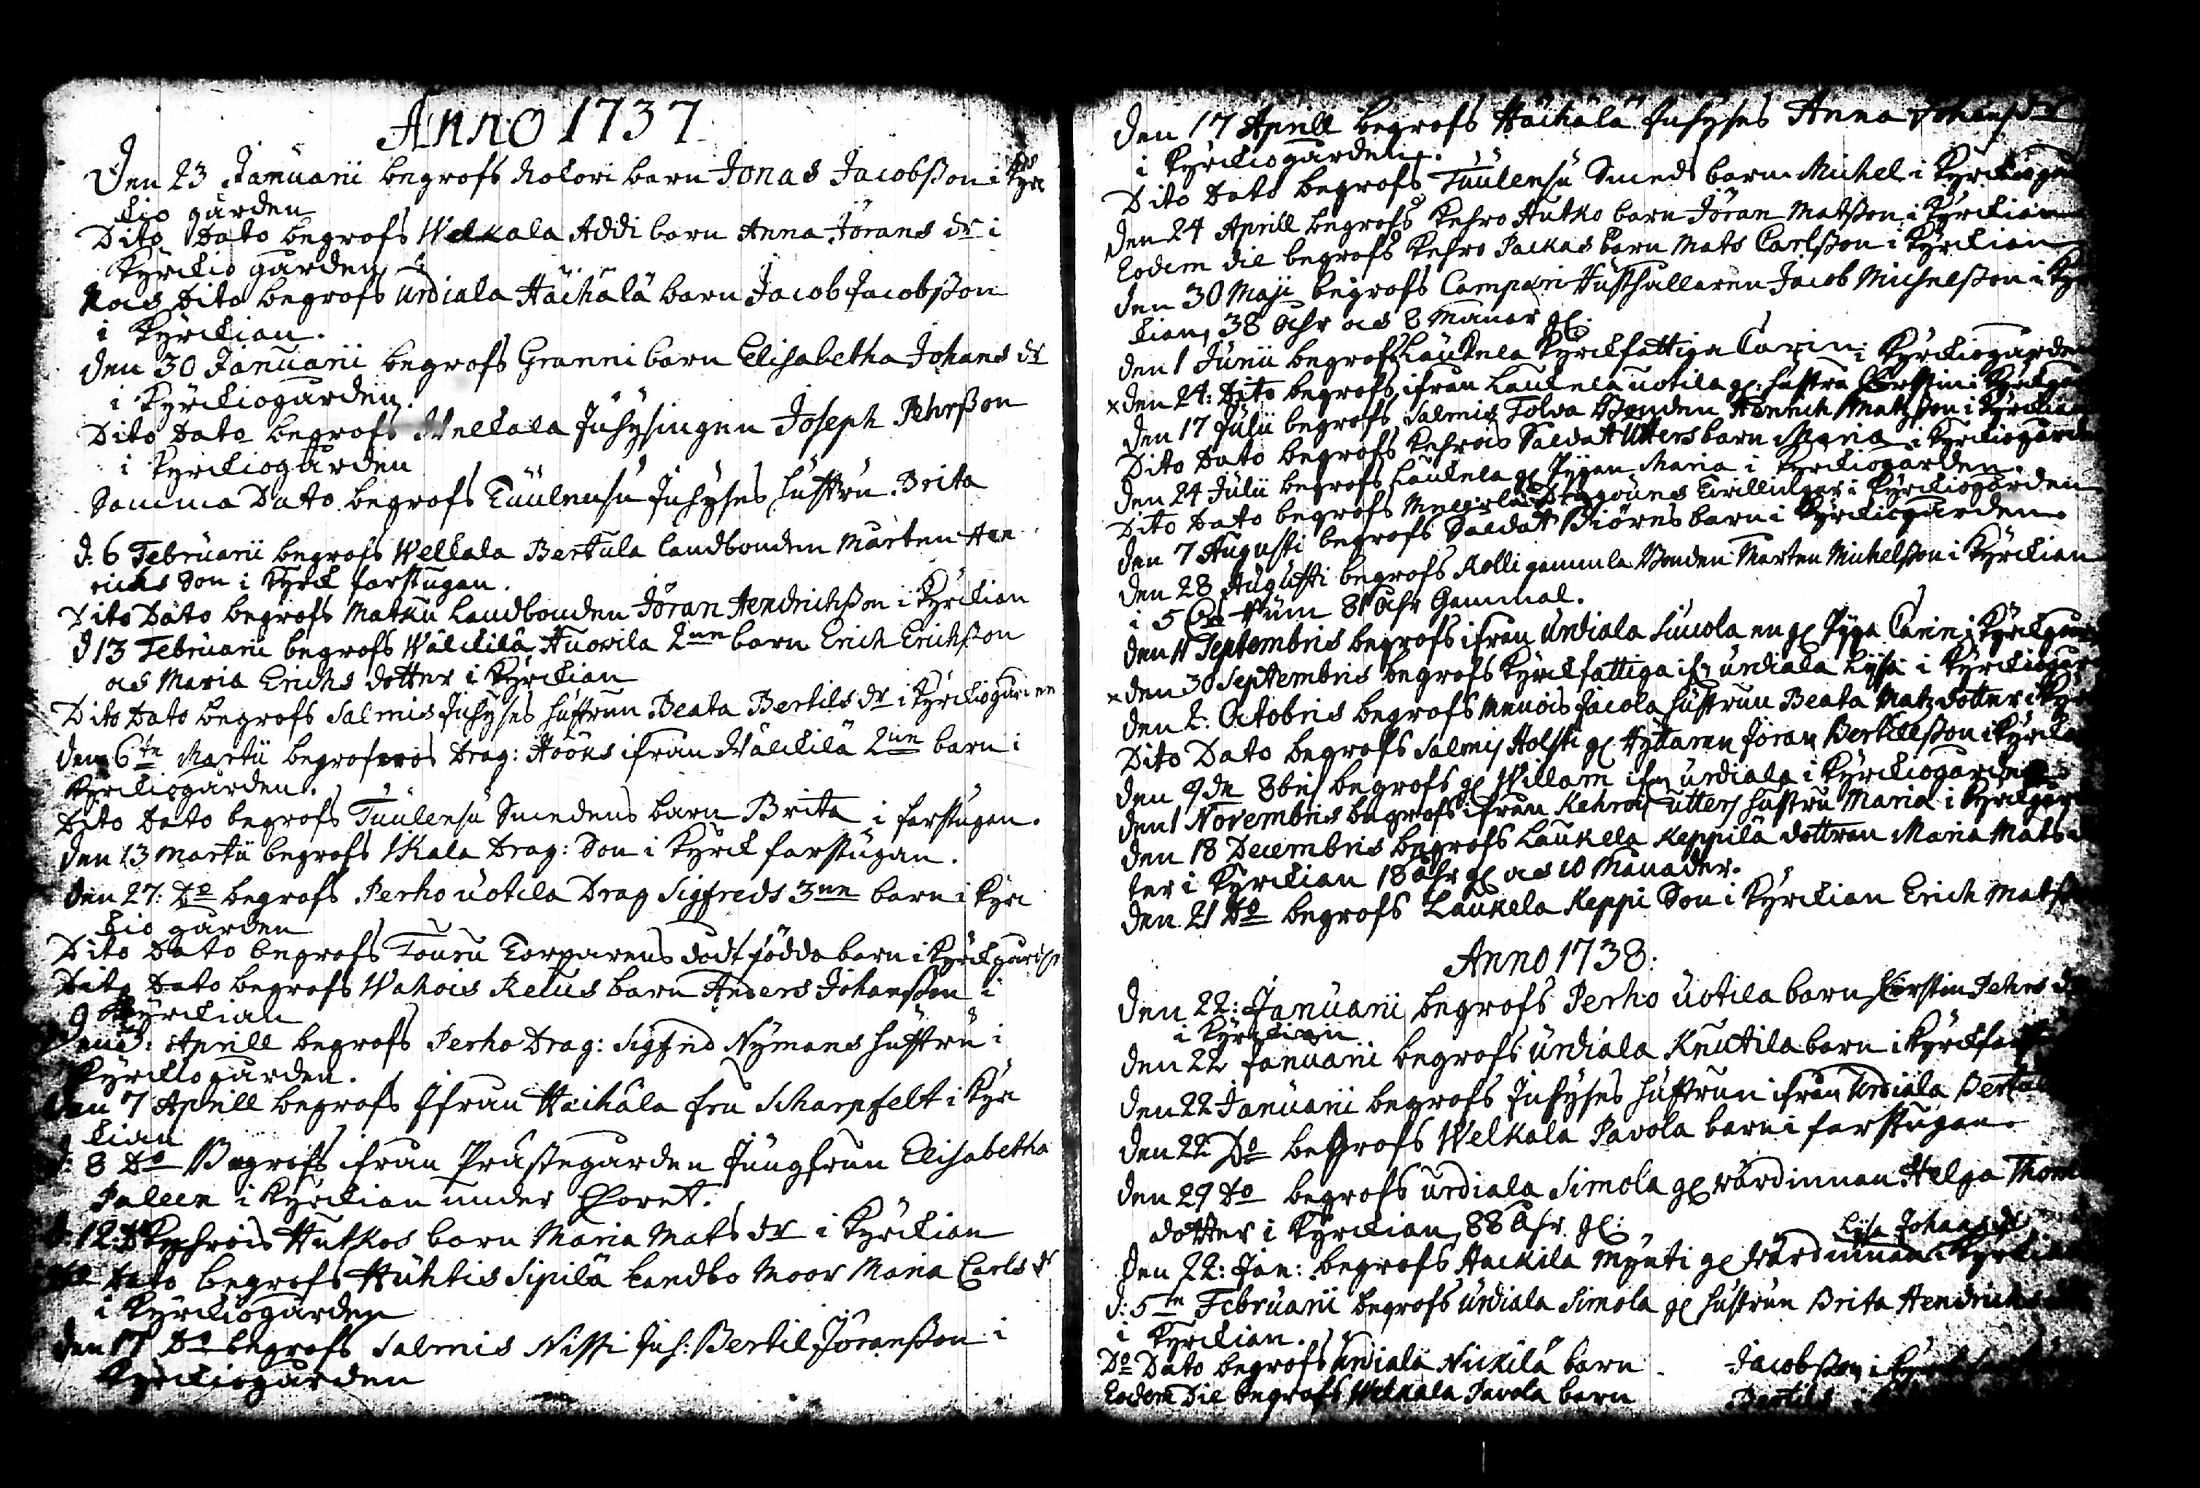 Anno 1737
Den 23 Januarii begrofs Kokori barn Jonas Jacobsson i Kyrc
kio gården
Dito Dato begrofs Wellkala Addi barn Anna Jörans dr i
Kyrckio gården
Kocis Dito begrofs Urdiala Häihälä barn Jacob Jacobsson
i Kyrckian.
Den 30 Januarii begrofs Granni barn Elisabetha Johans dr
i Kyrckiogården.
Dito Dato begrofs Wellkala Juhysingen Joseph Pehrsson
i Kyrckiogården
Samma Dato begrofs Tuulensu Juhyses hustru Brita
d. 6 Februarii begrofs Wellkala Bertula landbonden Mårten Hen
richs Son i Kyrck farstugan.
Dito Dato begrofs Matku Landbonden Jöran Hendrichsson i Kyrckian
d 13 Februarii begrofs Wälckilä Huovila 2ne barn Erich Erichsson
och Maria Erichs dotter i Kyrckian
Dito Dato begrofs Salmis Juhyses hustrun Beata Bertils dr i Kyrckiogården
den 6te Martii begrofs Drag: Hööks ifrån Wälckilä 2ne barn i
Kyrckiogården.
Dito Dato begrofs Tuulensu Smedens barn Brita i farstugan.
Den 13 Martii begrofs Skala Drag: Son i Kyrck farstugan.
Den 27. Do begrofs Perho Uotila Drag Sigfreds 3ne barn i Kyrc
kio gården
Dito Dato begrofs Touru Torparens dödt födda barn i Kyrckgård
Dito Dato begrofs Wahois Relus barn Anders Johansson i
Kyrckian
Den Aprill begrofs Perho Drag: Sigfrid Nymans hustru i
Kyrckiogården.
Den 7 Aprill begrofs Ifrån Haihåla fru Scharpfelt i Kyrc
kian
d: 8 Do Begrofs ifrån Prästegården Jungfrun Elisabetha
Paleen i Kyrckian under Choret.
d: 12: Do Kehrois Hutkos barn Maria Mats dr i Kyrckian
Do Dato begrofs Huhtis Sipilä Landbo Moor Maria Carls dr
i Kyrckiogården
Den 17 Do begrofs Salmis Nissi Juh: Bertil Jöransson i
Kyrckiogården
Den 17 Aprill begrofs Häihälä Juhyses Anna Johans dr
i Kyrckiogården.
Dito Dato begrofs Tuulensu Smeds barn Michel i Kyrckiogå
Den 24 Aprill begrofs Kehro Hutko barn Jöran Matsson i Kyrckian
Eodem die begrofs Kehro Packas barn Mats Carlsson i Kyrckian
Den 30 Maji begrofs Campari Husshullaren Jacob Michelsson i Kyr
kian, 38 Åhr och 8 Månar gl.
Den 1 Junii begrofs Laukela Kyrckfattiga Carin i Kyrckiogården
x den 24: Dito begrofs ifrån Laukela Uotila gl: hustru Kerstin i Kyrckgå
Den 17 Julii begrofs Salmis Tolva Bonden Henrich Matzson i Kyrckian
Dito Dato begrofs Kehrois Saldat Utters barn Maria i Kyrckiogård
Den 24 Julii begrofs Laukela gl Pigan Maria i Kyrckiogården.
Dito Dato begrofs Dragouns Twillingar i Kyrckiogården
Den 7 Augusti begrofs Saldat Biörns barn i Kyrckiogården.
Den 28 Augusti begrofs Rolli gamula Bonden Mårten Michelsson i Kyrckian
i 5 Rum 81 Åhr Gammal.
Den 11 Septembris begrofs ifrån Urdiala Luuola en gl Piga Carin i Kyrckgår
x den 30 Septembris begrofs Kyrckfattiga ifr Urdiala Lisa i Kyrckiogår
Den 2. Octobris begrofs Menois Jacola hustrun Beata Matz dotter i Kyr
Dito Dato begrofs Salmis Holsti gl Hyttaren Jöran Bertillsson i Kyrcki
Den 9de 8bris begrofs gl Willam ifr Urdiala i Kyrckiogården
Den 1 Novembris begrofs ifrån Kehrois Utters hustru Maria i Kyrckgår
Den 18 Decembris begrofs Laukela Keppilä dottren Maria Mats
ter i Kyrckian 18 åhr gl och 10 Månader.
Den 21 Do begrofs Laukela Keppi Son i Kyrckian Erich Mats
Anno 1738:
Den 22: Januarii begrofs Perho Uotila barn Kerstin Pehrs d
i Kyrckian
Den 22 Januarii begrofs Urdiala Knutila barn i Kyrckfarst
Den 22 Januarii begrofs Juhyses hustrun ifrån Urdiala Bertu
Den 22 Do begrofs Wellkala Pavola barn i farstugan.
Den 29 Do begrofs Urdiala Simola gl wärdinnan Helga Thom
dotter i Kyrckian, 88 Åhr gl:
Lisa Johans dr
Den 22: Jan: begrofs Hackila Mynti gl Wärdinnan i Kyrckian
d: 5te Februarii begrofs Urdiala Simola gl hustrun Brita Hendrichs
i Kyrckian.
Do Dato begrofs Urdiala Nickilä barn Jacobsson i Kyrck
Eodem Die begrofs Wellkala Pavola barn Bertils